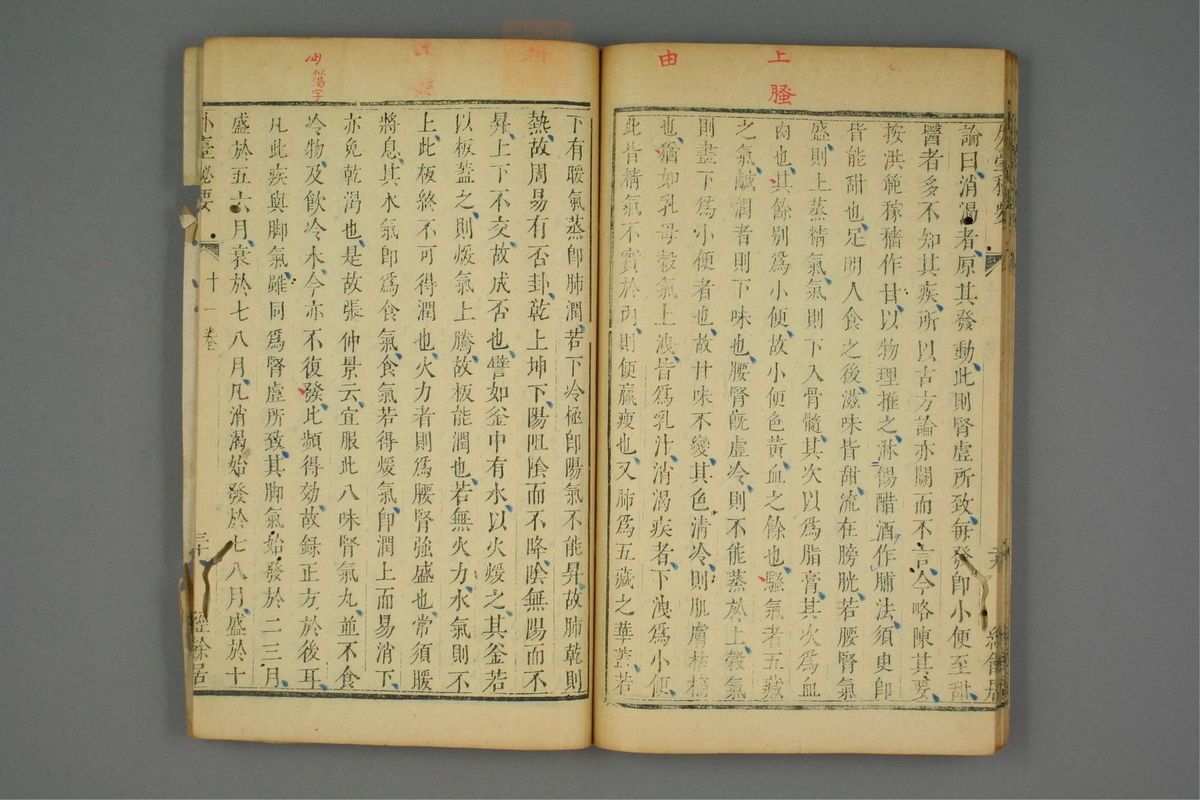 上 騷
由
論曰消渴者原其發動此則腎虛所致每發卽小便至甜
醫者多不知其疾所以古方論亦闕而不言今略陳其要
按洪範稼穡作甘以物理推之淋餳醋酒作脯法須臾卽
皆能甜也足明人食之後滋味皆甜流在膀胱若腰腎氣
盛則上蒸精氣氣則下入骨髓其次以爲脂膏其次爲血
肉也其餘别爲小便故小便色黃血之餘也騷氣者五藏
之氣鹹潤者則下味也腰腎旣虛冷則不能蒸於上穀氣
則盡下爲小便者也故甘味不變其色清冷則肌膚枯槁
也猶如乳母穀氣上洩皆爲乳汁消渴疾者下洩爲小便
此皆精氣不實於內則便羸瘦也又肺爲五藏之華蓋若
由 餳字
下有暖氣蒸卽肺潤若下冷極卽陽氣不能昇故肺乾則
熱故周易有否卦乾上坤下陽阻陰而不降陰無陽而不
昇上下不交故成否也譬如釜中有水以火煖之其釜若
以板蓋之則煖氣上騰故板能潤也若無火力水氣則不
上此板終不可得潤也火力者則爲腰腎強盛也常須暖
將息其水氣卽爲食氣食氣若得煖氣卽潤上而易消下
亦免乾渴也是故張仲景云宜服此八味腎氣丸並不食
冷物及飲冷水今亦不復發此頻得効故録正方於後耳
凡此疾與脚氣雖同爲腎虛所致其脚氣始發於二三月
盛於五六月衰於七八月凡消渴始發於七八月盛於十
外臺秘要 十一卷 三十 經餘居